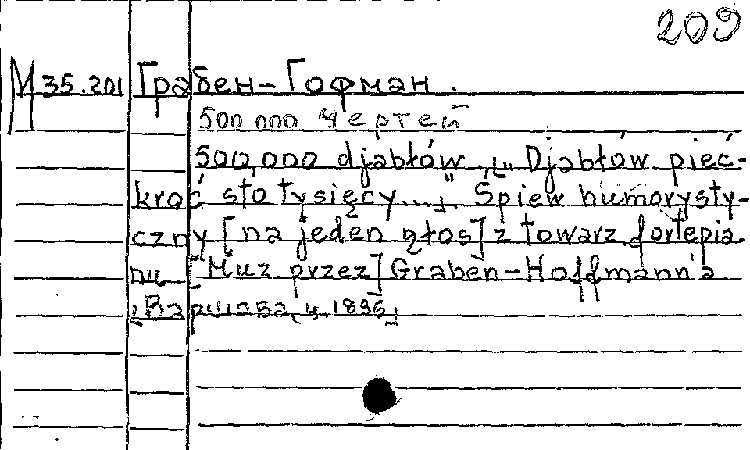 209
М 35.201 Грабен-Гофман.
500 000 чертей
500,000 djabłów „„ Djabłów pięć-
kroć sto tysięcy...„" Śpiew humorysty-
czny [na jeden głos] z towarz. fortepia
nu [Muz przez] Graben-Hoffmann'a
[Варшава, ц. 1896]